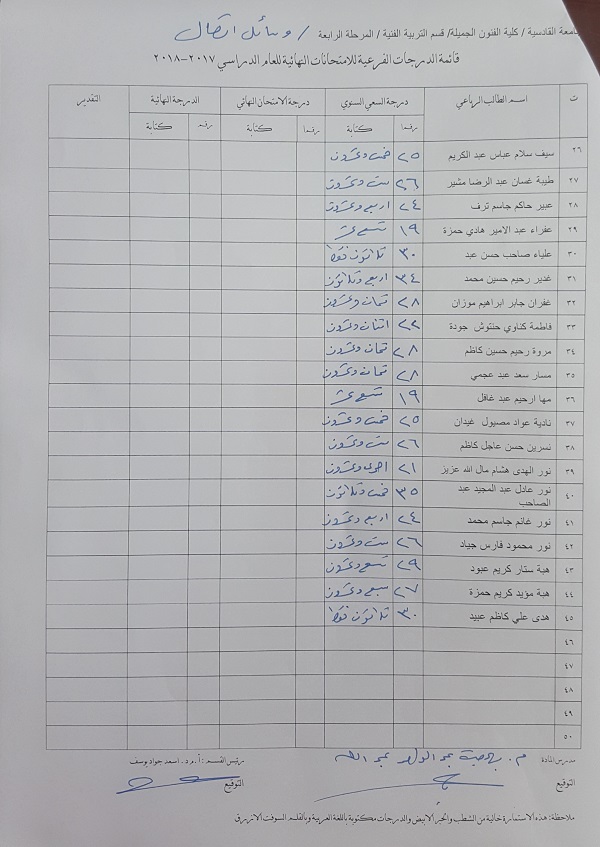 جامعة القادسية / كلية الفنون الجميلة/ قسم التربية الفنية / المرحلة الرابعة / وسائل اتصال
قائمة الدرجات الفرعية للامتحانات النهائية للعام الدراسي ٢٠١٧-٢٠١٨
ت اسم الطالب الرباعي درجة السعي السنوي درجة الامتحان النهائي الدرجة النهائية التقدير
رقما كتابة رقما كتابة رقما كتابة
٢٦ سيف سلام عباس عبد الكريم ٢٥ خمس وعشرون
٢٧ طيبة غسان عبد الرضا مشير ٢٦ ست وعشرون
٢٨ عبير حاكم جاسم ترف ٢٤ اربع وعشرون
٢٩ عفراء عبد الامير هادي حمزة ١٩ تسع عشر
٣٠ علياء صاحب حسن عبد ٣٠ ثلاثون فقط
٣١ غدير رحيم حسين محمد ٣٤ اربع وثلاثون
٣٢ غفران جابر ابراهيم موزان ٢٨ ثمان وعشرون
٣٣ فاطمة كناوي حنتوش جودة ٢٢ اثنان وعشرون
٣٤ مروة رحيم حسين كاظم ٢٨ ثمان وعشرون
٣٥ مسار سعد عبد عجمي ٢٨ ثمان وعشرون
٣٦ مها ارحيم عبد غافل ١٩ تسع عشر
٣٧ نادية عواد مصبول غيدان ٢٥ خمس وعشرون
٣٨ نسرين حسن عاجل كاظم ٢٦ ست وعشرون
٣٩ نور الهدى هشام مال الله عزيز ٢١ احدى وعشرون
٤٠ نور عادل عبد المجيد عبد الصاحب ٣٥ خمس وثلاثون
٤١ نور غانم جاسم محمد ٢٤ اربع وعشرون
٤٢ نور محمود فارس جياد ٢٦ ست وعشرون
٤٣ هبة ستار كريم عبود ٢٩ تسع وعشرون
٤٤ هبة مؤيد كريم حمزة ٢٧ سبع وعشرون
٤٥ هدى علي كاظم عبيد ٣٠ ثلاثون فقط
٤٦
٤٧
٤٨
٤٩
٥٠
مدرس المادة م. عبد الله رئيس القسم : أ.م.د. اسعد جواد يوسف
التوقيع التوقيع
ملاحظة: هذه الاستمارة خالية من الشطب والحبر الابيض والدرجات مكتوبة باللغة العربية وبالقلم السوفت الازرق